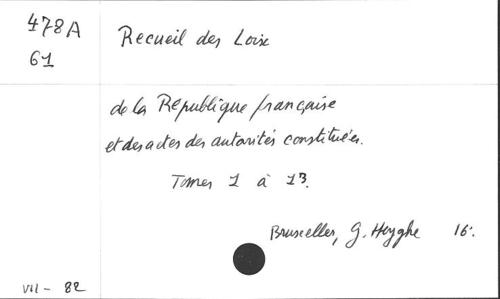 478A
61
Recueil des Loix
de la Republique française
et des actes des autorités constituées.
Tomes 1 à 13.
Bruxelles, G. Huyghe 16°.
VII - 82